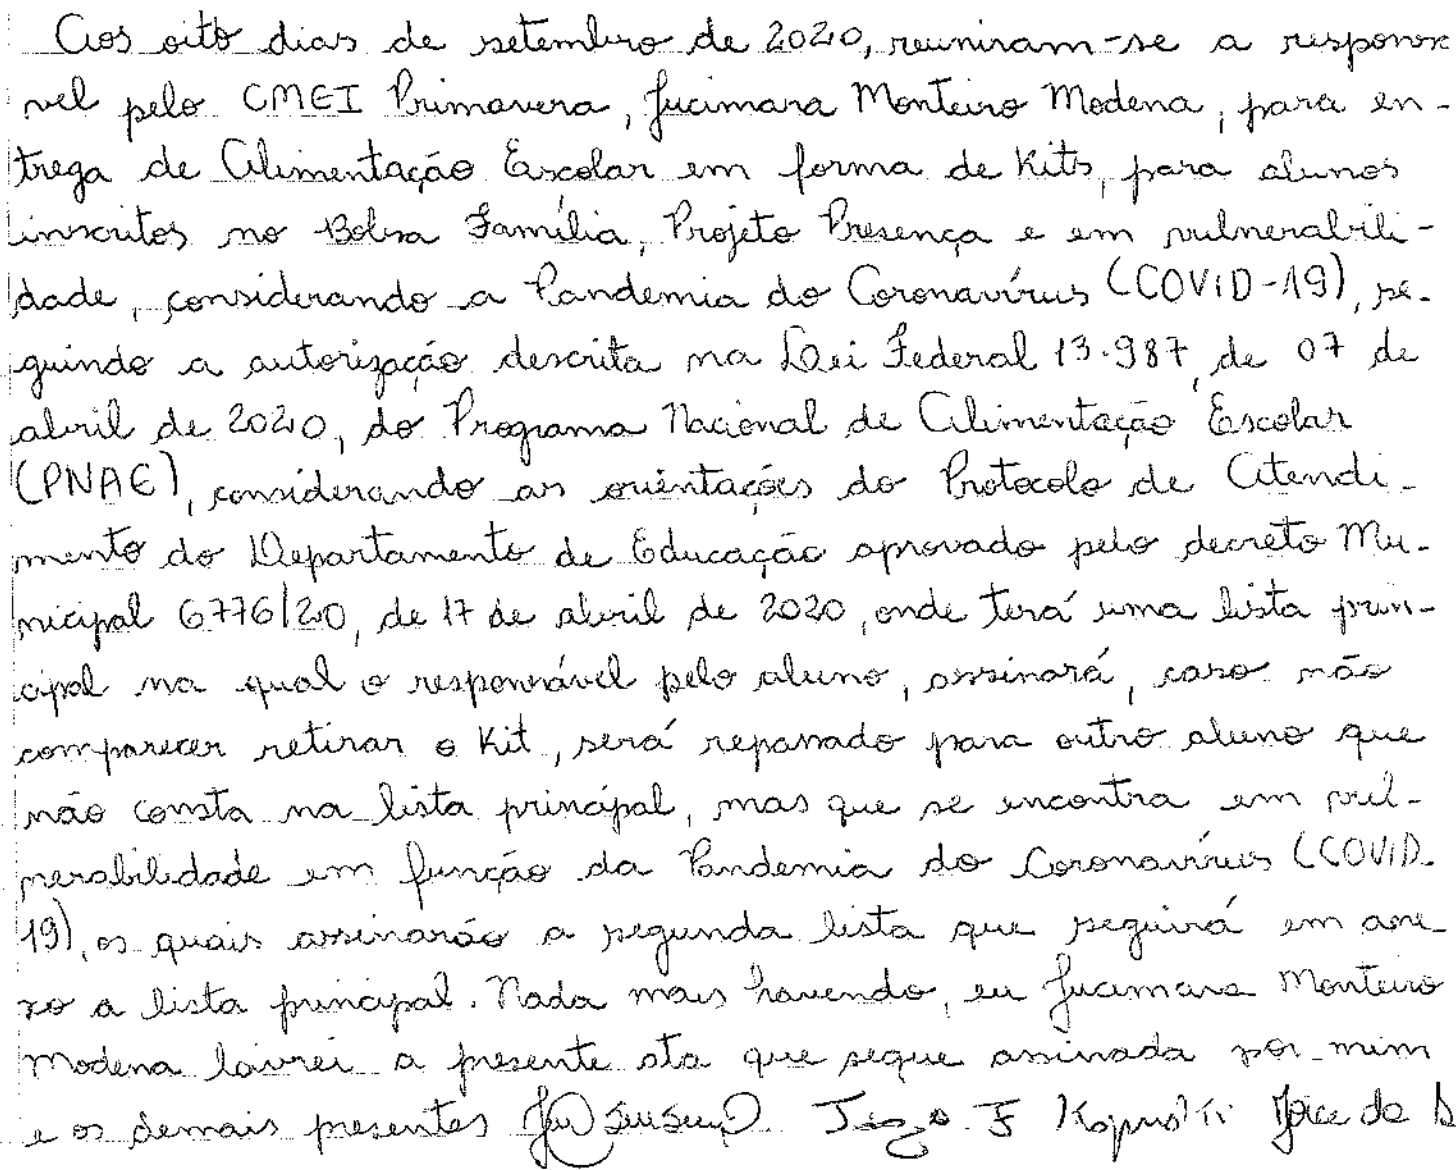 Aos oito dias de setembro de 2020, reuniram-se a responsá
vel pelo CMEI Primavera, Jucimara Monteiro Modena, para en-
trega de Alimentação Escolar em forma de Kits, para alunos
inscritos no Bolsa Família, Projeto Presença e em vulnerabili-
dade, considerando a Pandemia do Coronavírus (COVID-19), se-
guindo a autorização descrita na Lei Federal 13.987, de 07 de
abril de 2020, do Programa Nacional de Alimentação Escolar
(PNAE), considerando as orientações do Protocolo de Atendi-
mento do Departamento de Educação aprovado pelo decreto Mu-
nicipal 6776/20, de 17 de abril de 2020, onde terá uma lista prin-
cipal na qual o responsável pelo aluno, assinará, caso não
comparecer retirar o Kit, será repassado para outro aluno que
não consta na lista principal, mas que se encontra em vul-
nerabilidade em função da Pandemia do Coronavírus (COVID-
19), os quais assinarão a segunda lista que seguirá em ane-
xo a lista principal. Nada mais havendo, eu Jucimara Monteiro
Modena lavrei a presente ata que segue assinada por mim
e os demais presentes